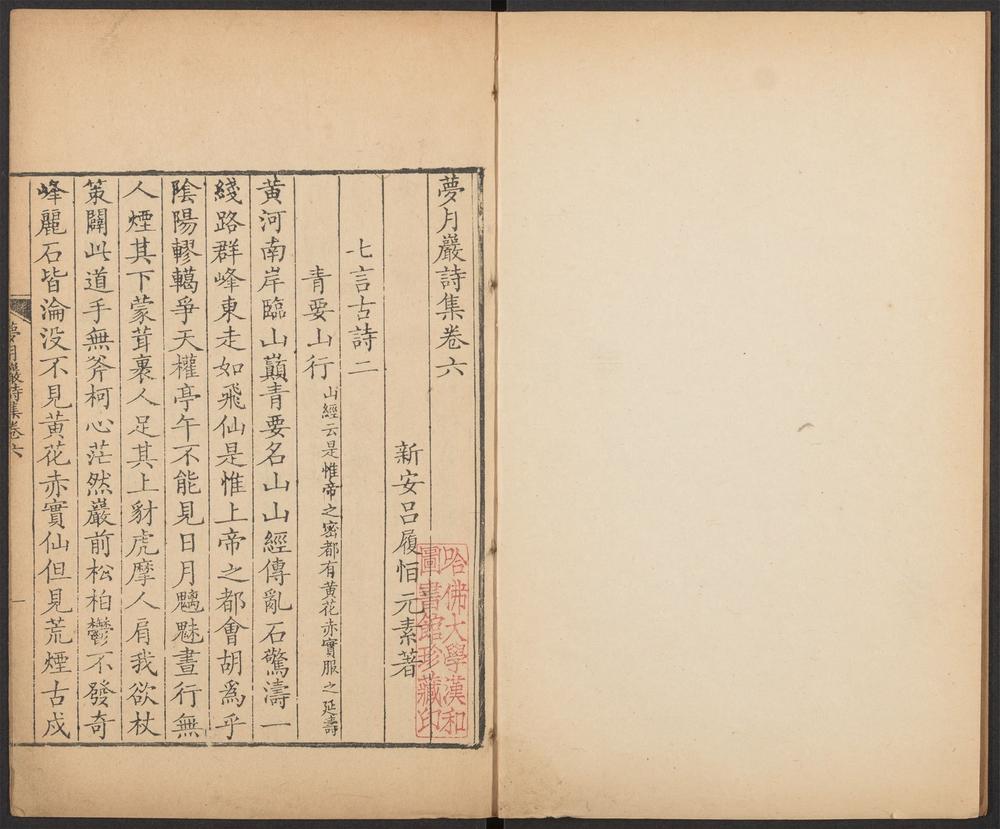 夢月巖詩集卷六
新安呂履恒元素著
七言古詩二
青要山行 山經云是惟帝之密都有黃花赤實服之延壽
黃河南岸臨山巔青要名山山經傳亂石驚濤一
綫路群峰東走如飛仙是惟上帝之都會胡爲乎
陰陽轇轕爭天權亭午不能見日月魑魅晝行無
人煙其下蒙茸裹人足其上豺虎摩人肩我欲杖
策闢此道手無斧柯心茫然巖前松柏鬱不發奇
峰麗石皆淪沒不見黃花赤實仙但見荒煙古戍
夢月巖詩集卷六
一
哈佛大學漢和
圖書館珍藏印